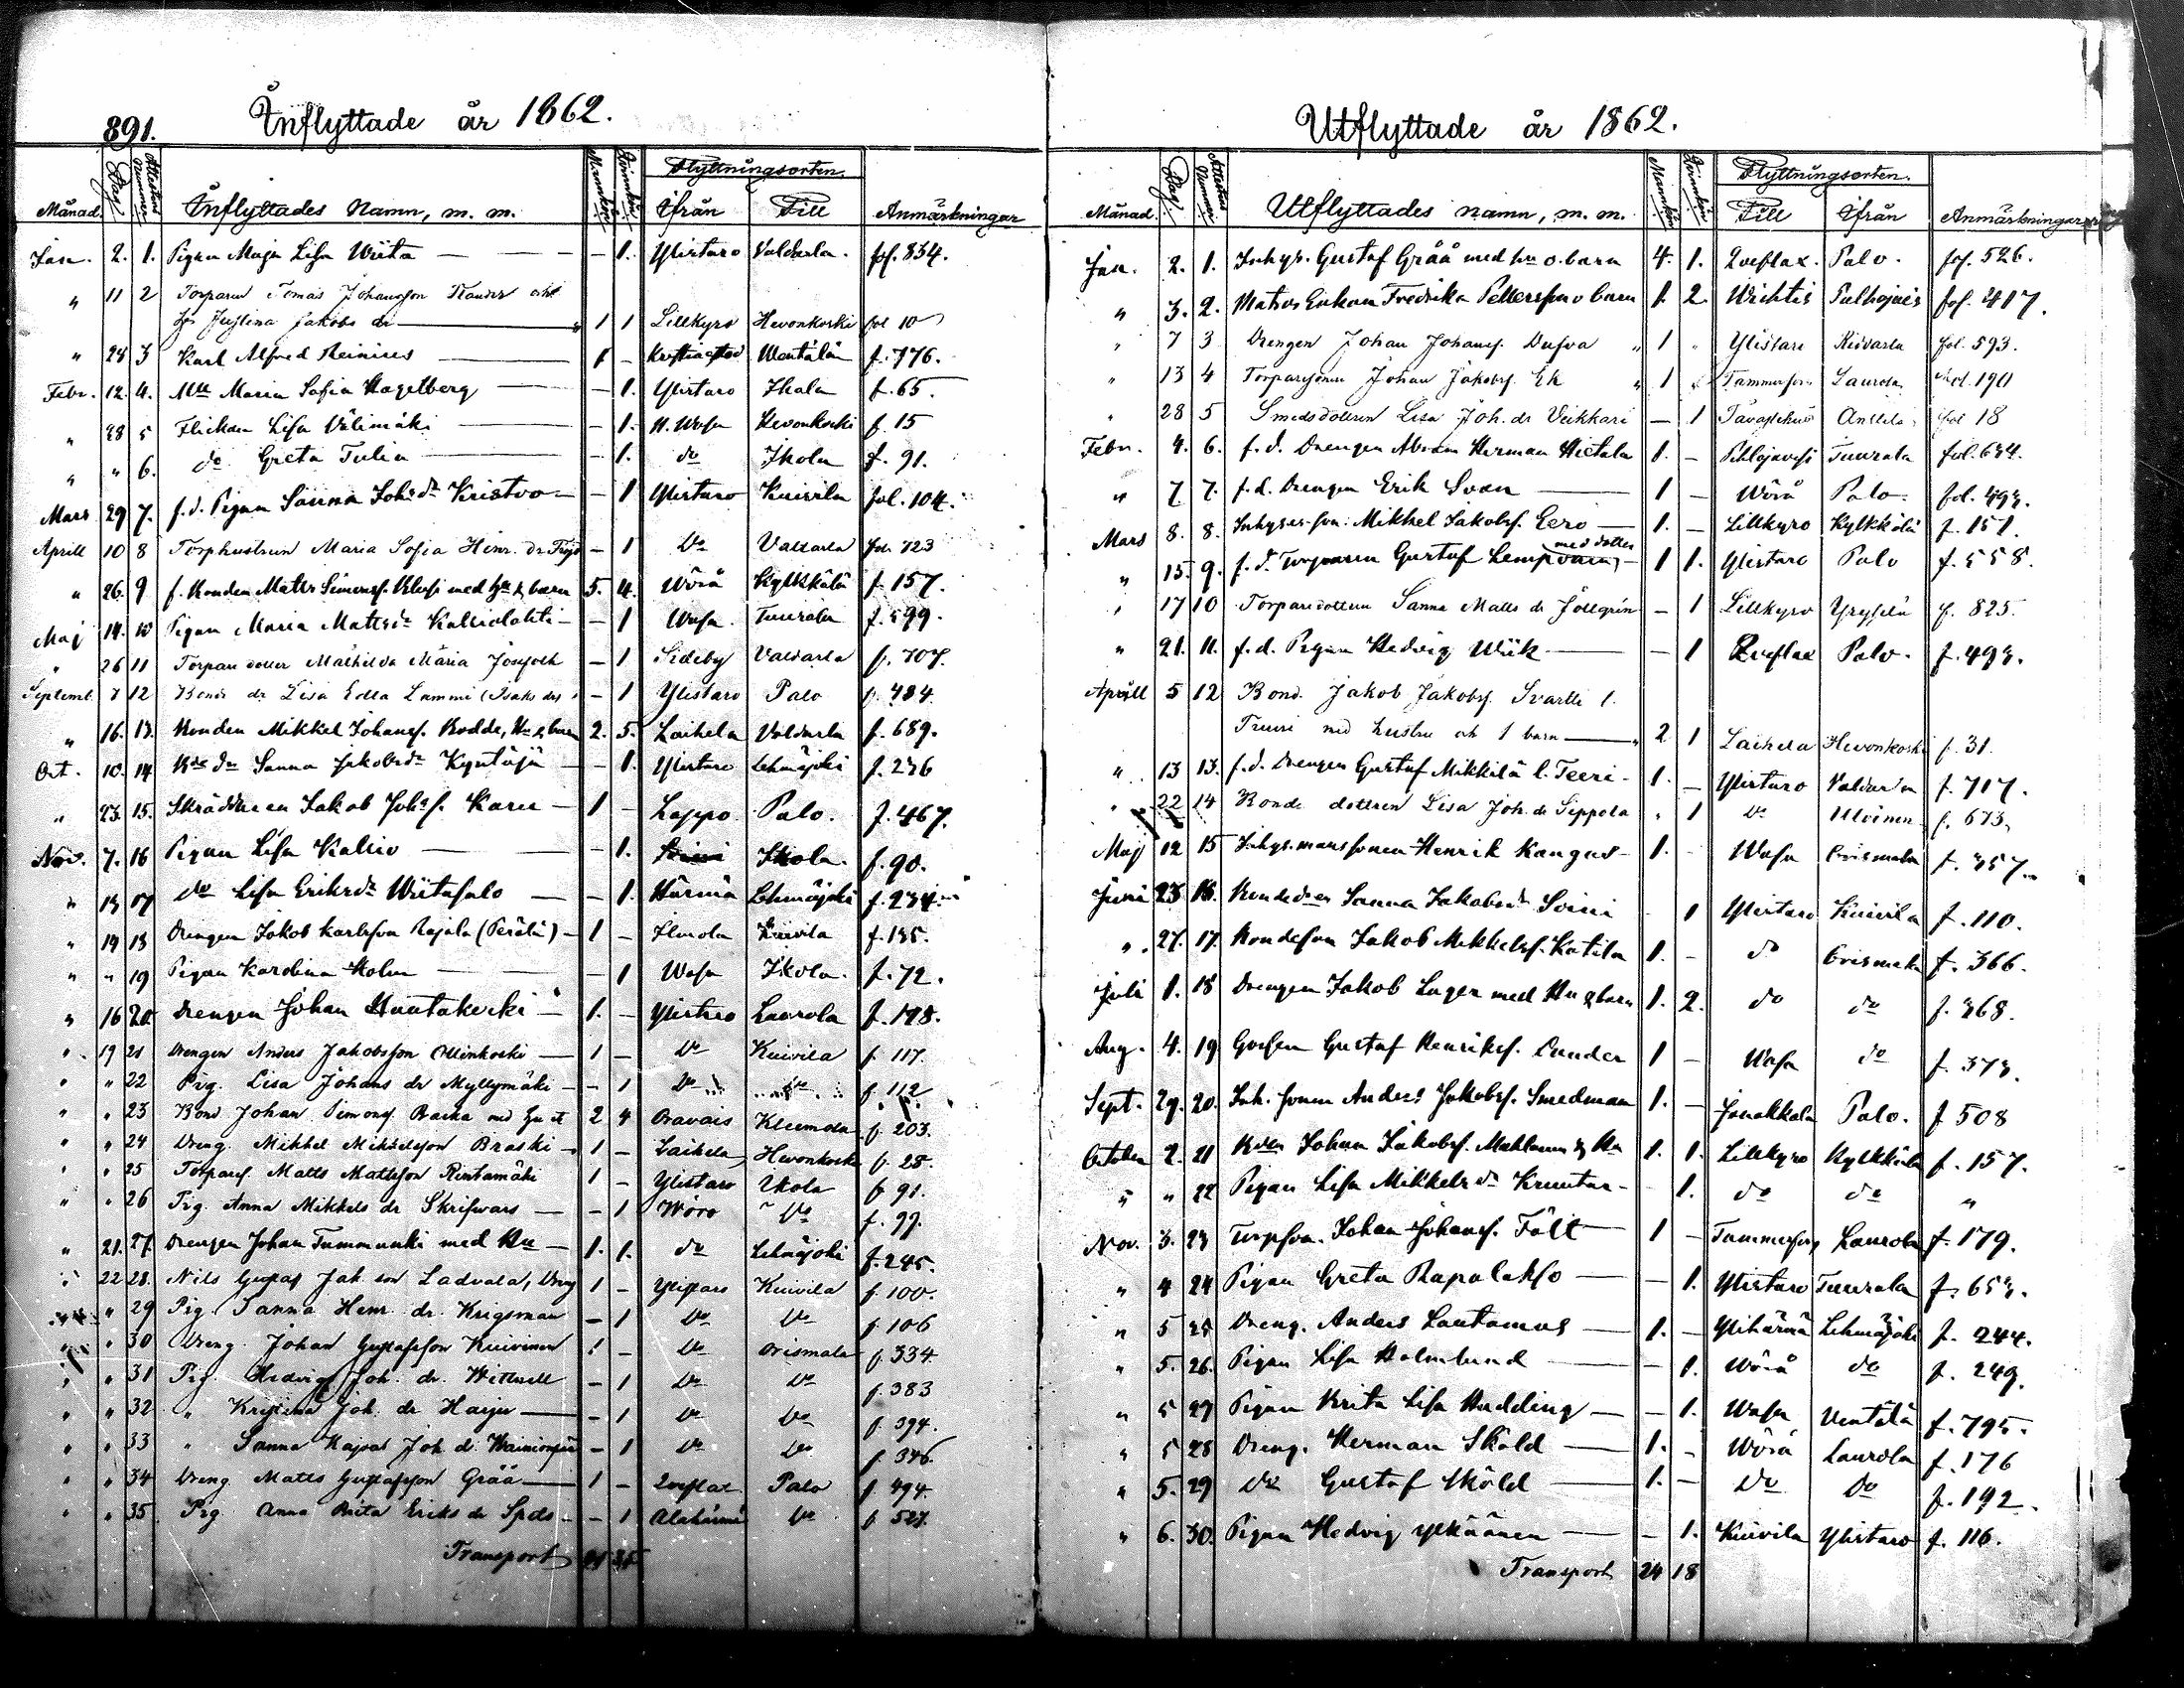 891.
Inflyttade år 1862.
Månad. Dag Attestens Nummer Inflyttades Namn, m. m. Mankön Qvinkön Flyttningsorten. Ifrån Till Anmärkningar
Jan. 2. 1. Pigan Maja Lisa Wiita — - 1. Ylistaro Valdarla. fol. 834.
" 11 2 Torparen Tomas Johansson och
hu Justina Jakobs dr — 1 1 Lillkyro Hevonkoski fol 10
" 28 3 Karl Alfred Reinius — 1 - Kristinestad Wentälä f. 776.
Febr. 12. 4. Maria Sofia Hagelberg — - 1. Ylistaro Ikola f. 65.
" 28 5 Flickan Lisa Välimäki — - 1. N. Wasa Hevonkoski f. 15
" " 6. do Greta Tulia — - 1. do Ikola f. 91.
Mars 29 7. f.d. Pigan Sanna Joh.dr Kristvo — - 1 Ylistaro Kuivila fol. 104.
Aprill 10 8 Torphustrun Maria Sofia Henr. dr - 1 Do Valtarla fol. 723
" 26. 9 f. Bonden Matts Simonss. med hu & barn 5. 4. Wörå Kylkkälä f. 157.
Maj 14. 10 Pigan Maria Mattsdr Kalliolahti — - 1 Wasa. Tuurala f. 599.
" 26 11 Torpare dotter Mathilda Maria - 1 Sideby Valtarla f. 707.
Septemb. 7 12 Bonde dr Lisa Edla Lammi (Isaks dr) - 1 Ylistaro Palo f. 484.
" 16. 13. Bonden Mikkel Johanss. Rodde, hu & barn 2. 5. Laihela Valdarla f. 689.
Oct. 10. 14 Sanna Jakobsdr Kyntäjä — - 1. Ylistaro Lehmäjoki f. 236
" 23. 15. Skräddaren Jakob Johss. Karu — 1 - Lappo Palo. f. 467.
Nov. 7. 16 Pigan Lisa Kallio — - 1. Ikola. f. 90.
" 13 17 do Lisa Eriksdr Wiitasalo — - 1. Härmä Lehmäjoki f. 234.
" 14 18 Drengen Jakob Karlsson Rajala (Perälä) — 1 - Ilmola Kuivila f. 135.
" " 19 Pigan Karolina Holm — - 1 Wasa Ikola. f. 72.
" 16 20. Drengen Johan Hautakoski — 1. - Ylistaro Laurola f. 178.
" 19 21 Drengen Anders Jakobsson — 1 - Do Kuivila f. 117.
" " 22 Pig. Lisa Johans dr Myllymäki — - 1 Do Do f. 112
" " 23 Bond. Johan Simonss. Backa med hu 2 4 Oravais Kleemola f. 203.
" " 24 Dreng. Mikkel Mikkelsson Braski — 1 - Laihela Hevonkoski f. 25.
" " 25 Torpares. Matts Mattsson Rintamäki 1 - Ylistaro Ikola f. 91.
" " 26 Pig. Anna Mikkels dr Skrifwars — - 1 Wöro Do f. 97.
" 21. 27. Drengen Johan Tummunki med Hu — 1. 1. do Lehmäjoki f. 245.
" 22 28. Nils Gustaf Jak. son Ladvala, Dreng 1 - Ylistaro Kuivila f. 100.
" " 29 Pig. Sanna Henr. dr. Krigsman — - 1 Do Do f. 106
" " 30 Dreng. Johan Gustafsson Kuivinen 1 - Do Orismala f. 334.
" " 31 Pig. Hedvig Joh. dr. - 1 Do Do f. 383
" " 32 " Kristina Joh. dr Harju — - 1 Do Do f. 394.
" " 33 " Sanna Kajsa Joh. dr. Wainionpää - 1 Do Do f. 346.
" " 34 Dreng. Matts Gustafsson Grää — 1 - Qveflax Palo f. 494.
" " 35. Pig. Anna Brita Eriks dr — - 1 Alahärmä Do f. 527.
Transport
Utflyttade år 1862.
Månad. Dag Attestens Nummer Utflyttades namn, m. m. Mankön Qvinkön Flyttningsorten. Till Ifrån Anmärkningar
Jan. 2. 1. Inhys. Gustaf Grää med hu o. barn 4. 1. Qveflax. Palo. fol. 526.
" 3. 2. Enkan Fredrika Petterss. o barn 1. 2. Wichtis fol. 417.
" 7 3 Drengen Johan Johanss. Dufva " 1 " Ylistaro fol. 593.
" 13 4 Torparesonen Johan Jakobss. Ek " 1 Tammerfors Laurola fol. 190
" 28 5 Smedsdottren Lisa Joh. dr Veikkari — 1 Tavastehus Anttila fol 18
Febr. 4. 6. f. d. Drengen Abram Herman Hietala 1. - Tuurala fol. 634.
" 7 7. f. d. Drengen Erik Svan — 1 - Wörå Palo. fol. 493.
Mars 8. 8. Inhyses-son. Mikkel Jakobss. Eero — 1. - Lillkyro Kylkkälä f. 151.
" 15. 9. f. d. Torparen Gustaf Lempvain med dotter 1 1. Ylistaro Palo f. 558.
" 17 10 Torparedottern Sanna Matts dr - 1 Lillkyro f. 825.
" 21. 11. f. d. Pigan Hedvig Wiik — - 1 Qveflax Palo. f. 493.
Aprill 5 12 Bond. Jakob Jakobss. Svartti l.
med hustru och 1 barn — 2 1 Laihela Hevonkoski f. 31.
" 13 13. f. d. Drengen Gustaf Mikkilä l. Teeri — 1. - Ylistaro f. 717.
" 22 14 Bonde dottren Lisa Joh. dr Seppola " 1 Do Ulvinen f. 673.
Maj 12 15 Inhys.manssonen Henrik Kangas — 1. - Wasa Orismala f. 357.
Juni 23 16. Sanna Jakobsdr Soini - 1 Ylistaro Kuivila f. 110.
" 27. 17. Bondeson Jakob Mikkelss. Katila 1. - do Orismala f. 366.
Juli 1. 18 Drengen Jakob Lager med Hu & barn 1. 2. do do f. 368.
Aug. 4. 19 Gossen Gustaf Henrikss. Lunden 1 - Wasa do f. 373.
Sept. 29. 20. Inh. sonen Anders Jakobss. Smedman 1. - Janakkala Palo. f 508
October 2. 21 Johan Jakobss. & Hu 1. 1. Lillkyro Kylkkälä f. 157.
" " 22 Pigan Lisa Mikkelsdr — 1. do do "
Nov. 3. 23 Torpson. Johan Johanss. Fält — 1 - Tammerfors Laurola f. 179.
" 4 24 Pigan Greta Rapalakso — - 1. Ylistaro Tuurala f. 653.
" 5 25 Dreng. Anders Lautamus — 1. - Ylihärmä Lehmäjoki f. 244.
" 5. 26. Pigan Lisa Holmlund — - 1. Wörå do f. 249.
" 5 27 Pigan Brita Lisa Hudding — - 1. Wasa Ventälä f. 795.
" 5 28 Dreng. Herman Sköld — 1. - Wörå Laurola f. 176
" 5. 29 Do Gustaf Sköld — 1. - Do Do f. 192.
" 6. 30. Pigan Hedvig Ylkäänen — - 1. Kuivila Ylistaro f. 116.
Transport 24 18